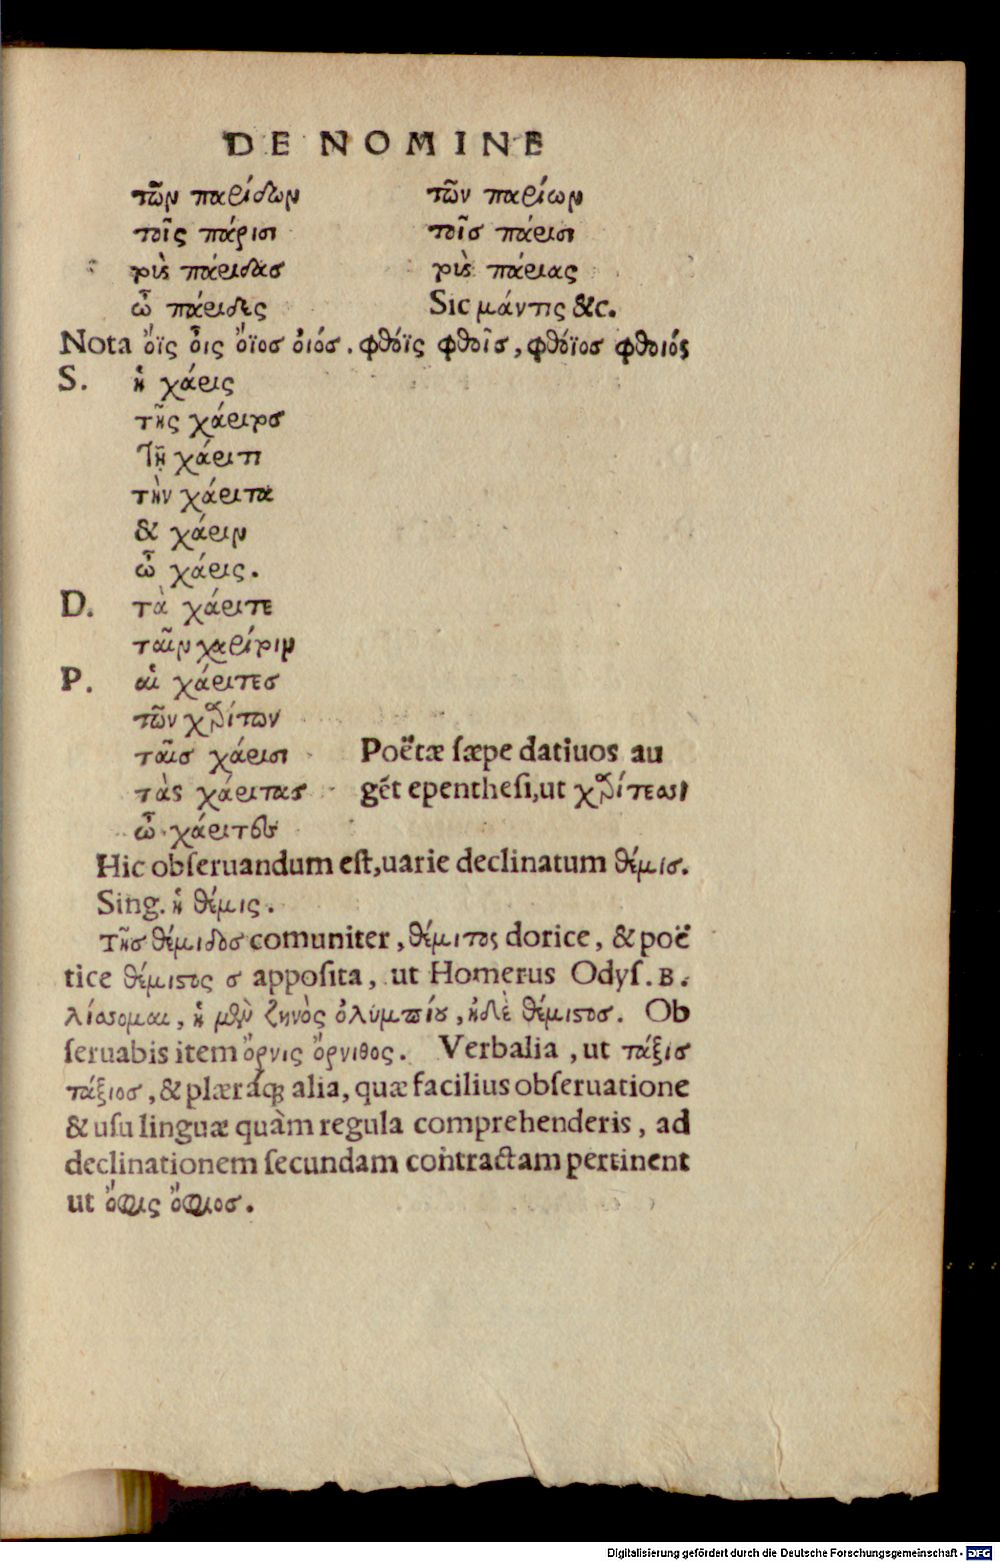 DE NOMINE
τῶν παρίδων τῶν παρίων
τοῖς πάρισι τοῖσ πάρισι
τοὺς πάριδασ τοὺς πάριας
ὦ πάριδες Sic μάντις &c.
Nota ὄϊς οἶς ὄϊοσ οἰόσ. φθόϊς φθοῖσ, φθόϊοσ φθοιός
S. ἡ χάρις
τῆς χάριτοσ
τῇ χάριτι
τὴν χάριτα
& χάριν
ὦ χάρις.
D. τὰ χάριτε
ταῖν χαρίτοιν
P. αἱ χάριτεσ
τῶν χαρίτων
ταῖσ χάρισι Poëtæ sæpe datiuos au
τὰς χάριτασ gẽt epenthesi, ut χαρίτεσσι
ὦ χάριτες
Hic obseruandum est, uarie declinatum θέμισ.
Sing. ἡ θέμις.
τῆσ θέμιδοσ comuniter, θέμιτος dorice, & poë
tice θέμιστος σ apposita, ut Homerus Odys. B.
λίσσομαι, ἡ μὲν ζηνὸς ὀλυμπίου, ἠδὲ θέμιστοσ. Ob
seruabis item ὄρνις ὄρνιθος. Verbalia, ut τάξισ
τάξιοσ, & plæráq; alia, quæ facilius obseruatione
& usu linguæ quàm regula comprehenderis, ad
declinationem secundam contractam pertinent
ut ὄφις ὄφιοσ.
Digitalisierung gefördert durch die Deutsche Forschungsgemeinschaft - DFG